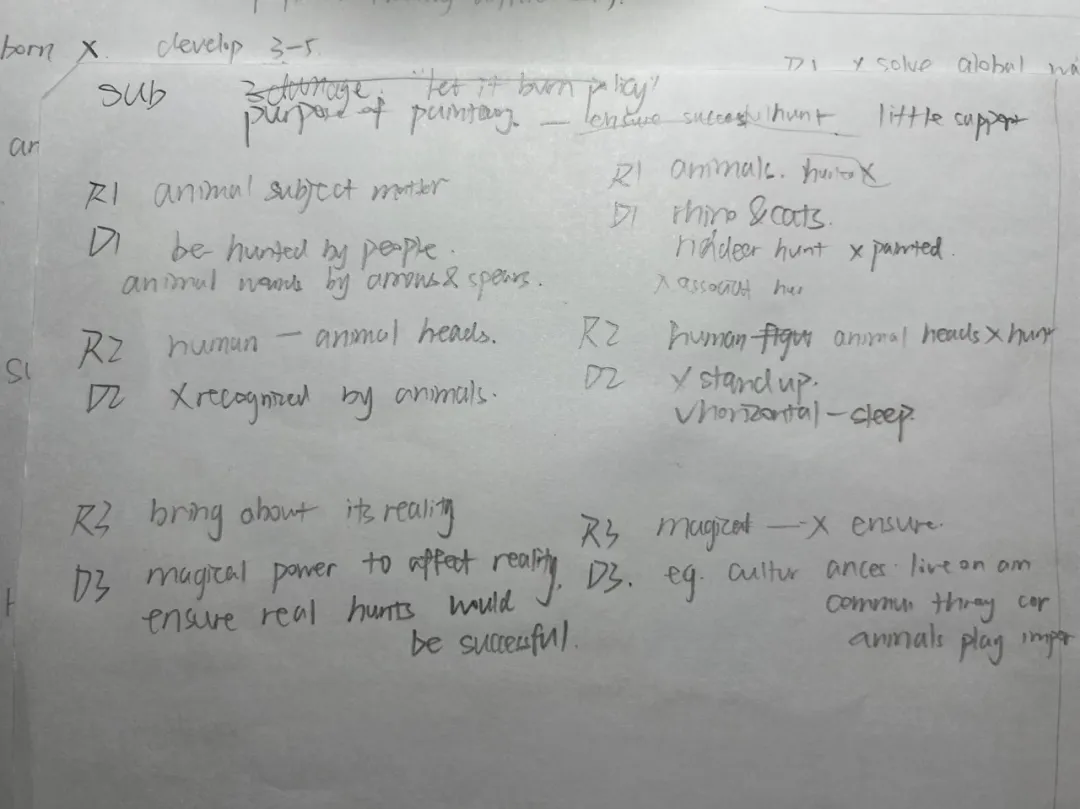 born x. develop 3-5
D1 x solve global
sub 3 damage. "let it burn policy"
purpose of painting. — ensure successful hunt little support
R1 animal subject matter
D1 be hunted by people.
animal by arrows & spears.
R2 human — animal heads.
D2 X recognized by animals.
R3 bring about its reality
D3 magical power to affect reality.
ensure real hunts would
be successful.
R1 animals.
D1 rhino & cats.
hunt x painted.
x
R2 human animal heads x hunt
D2 x stand up.
v horizontal — sleep.
R3 magical — x ensure.
D3. eg. cultur ances. live on am
commun
animals play impor